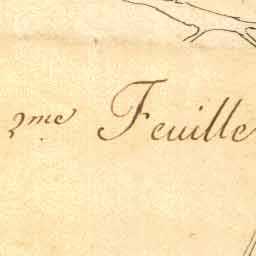 2me Feuille